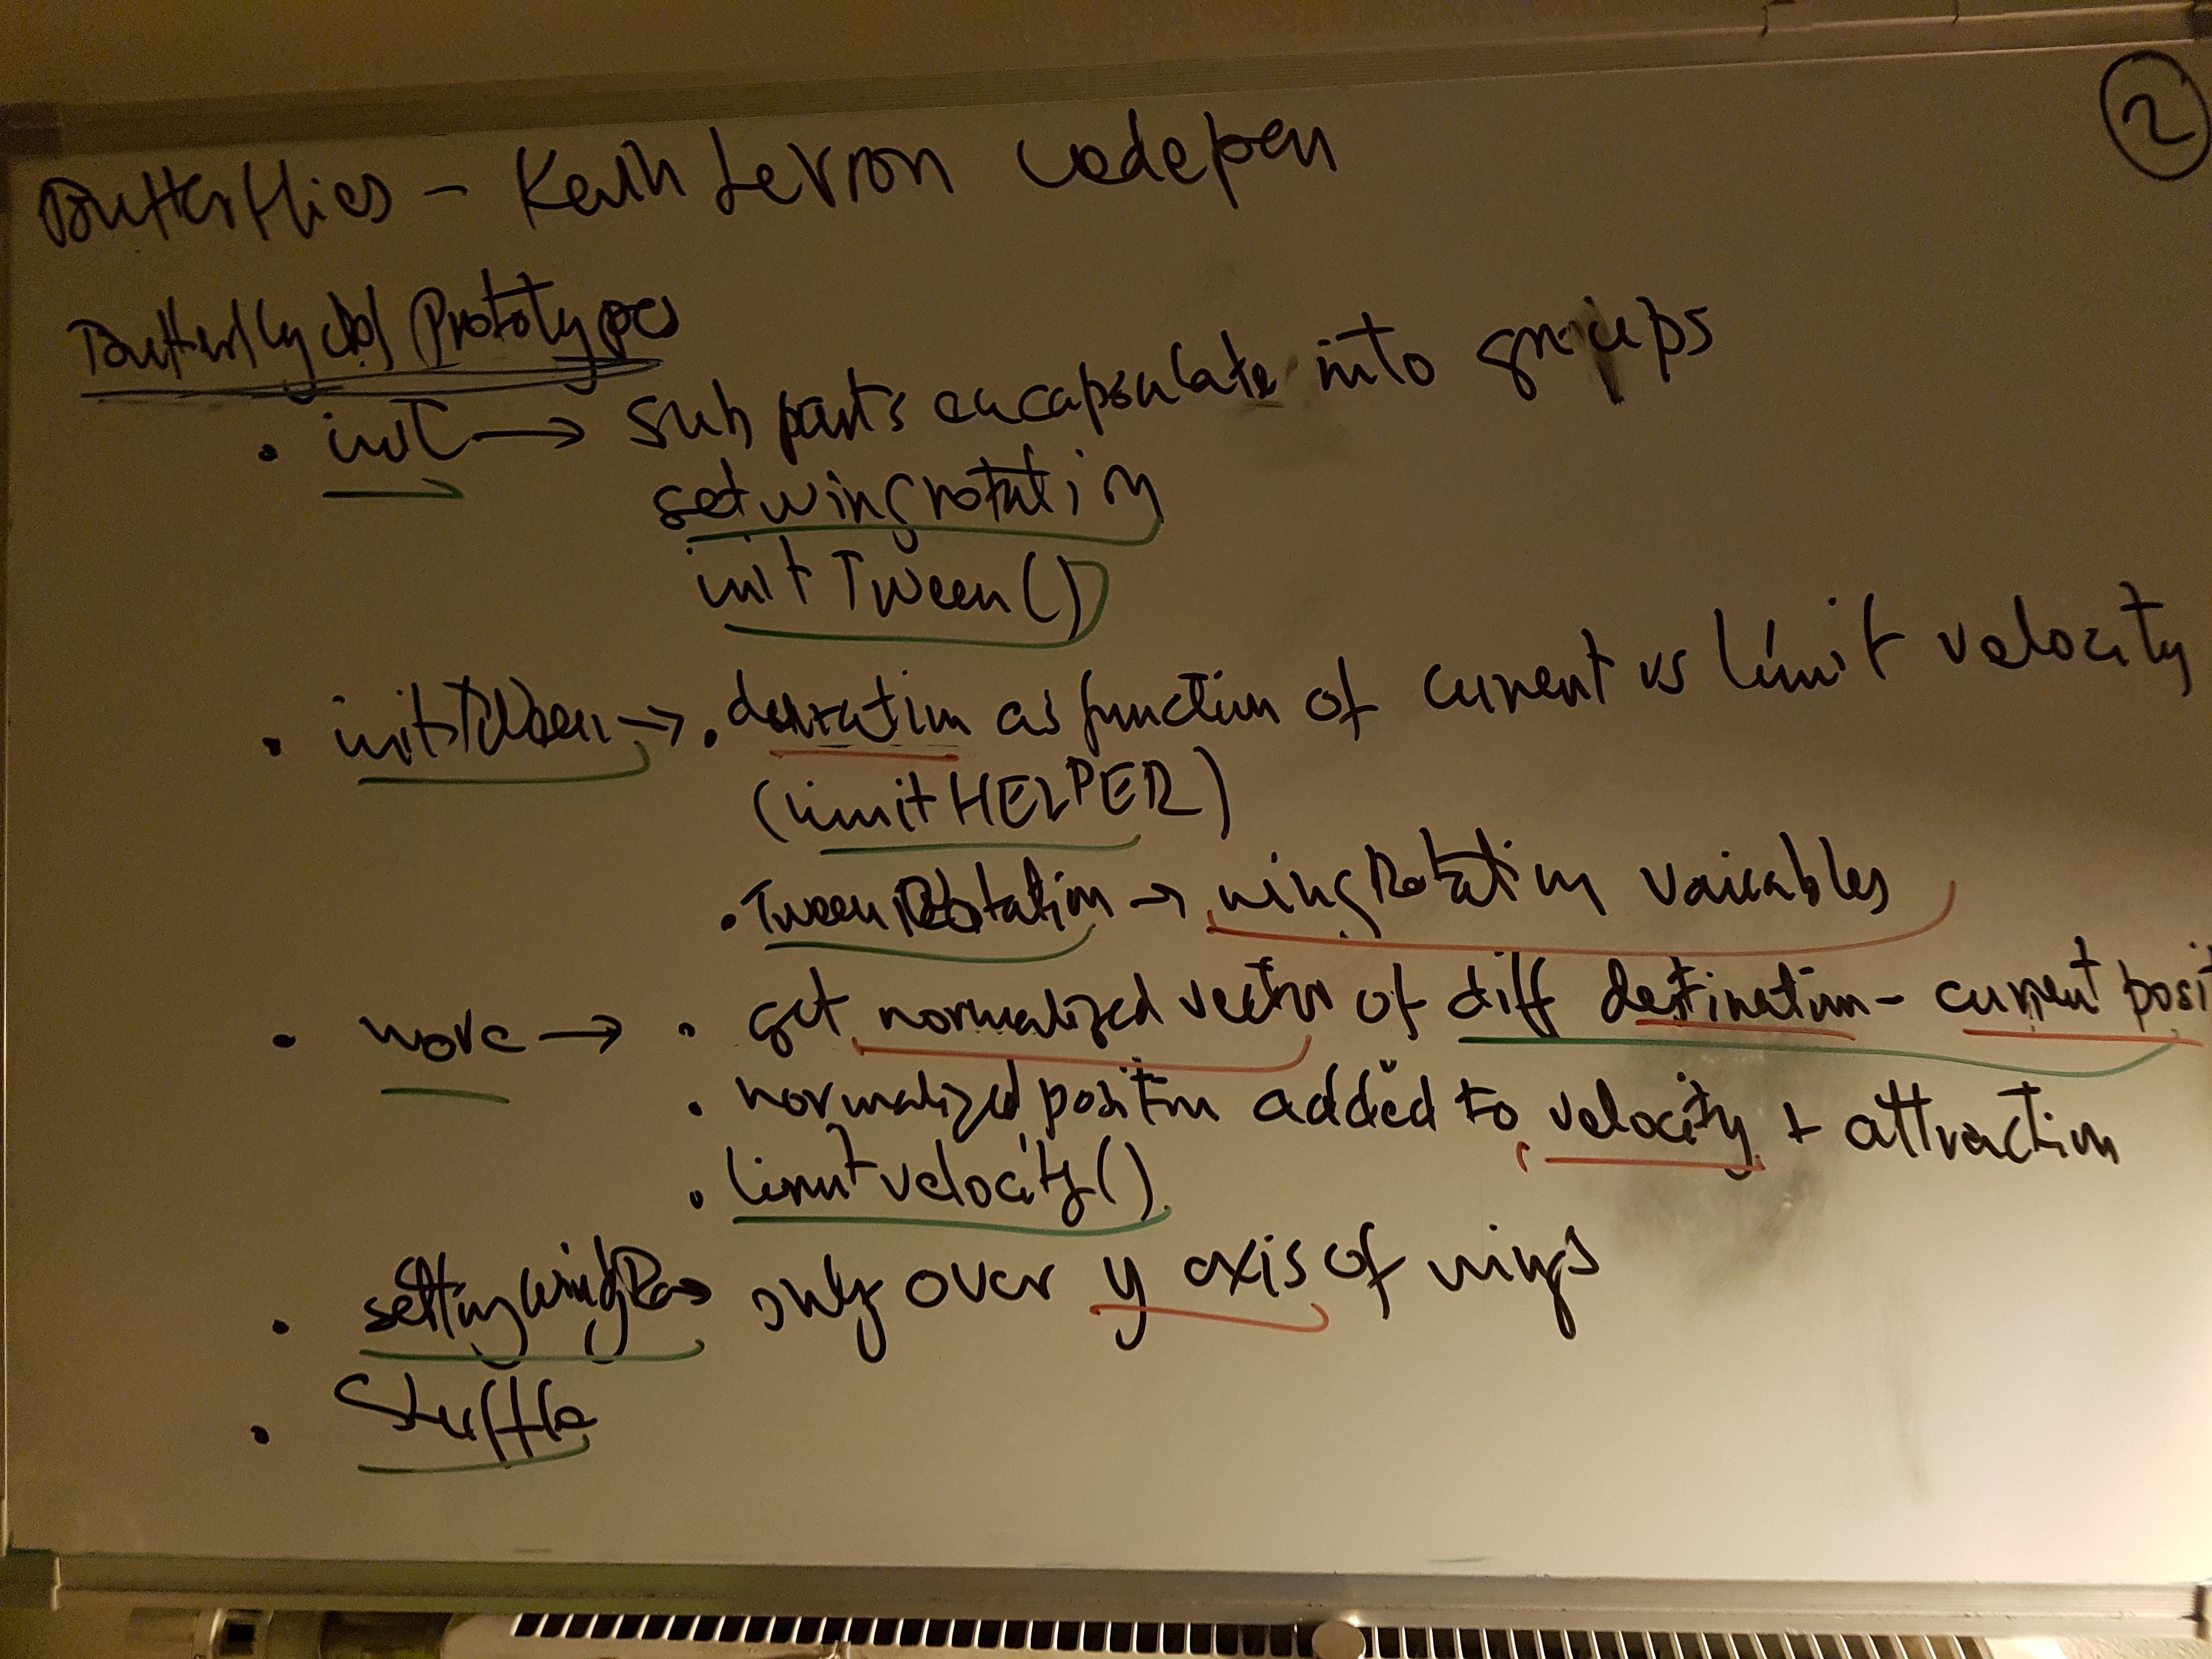 2
Butterflies - Levron codepen
Prototypes
• init → Sub parts encapsulate into groups
set wing rotation
init Tween()
• initTween → • duration as function of current vs limit velocity
(limit HELPER)
• Tween Rotation → wing Rotation variables
• move → • get normalized vector of diff destination - current posit
• normalized position added to velocity + attraction
• limit velocity()
• setting wing Ro → only over y axis of wings
• Shuffle